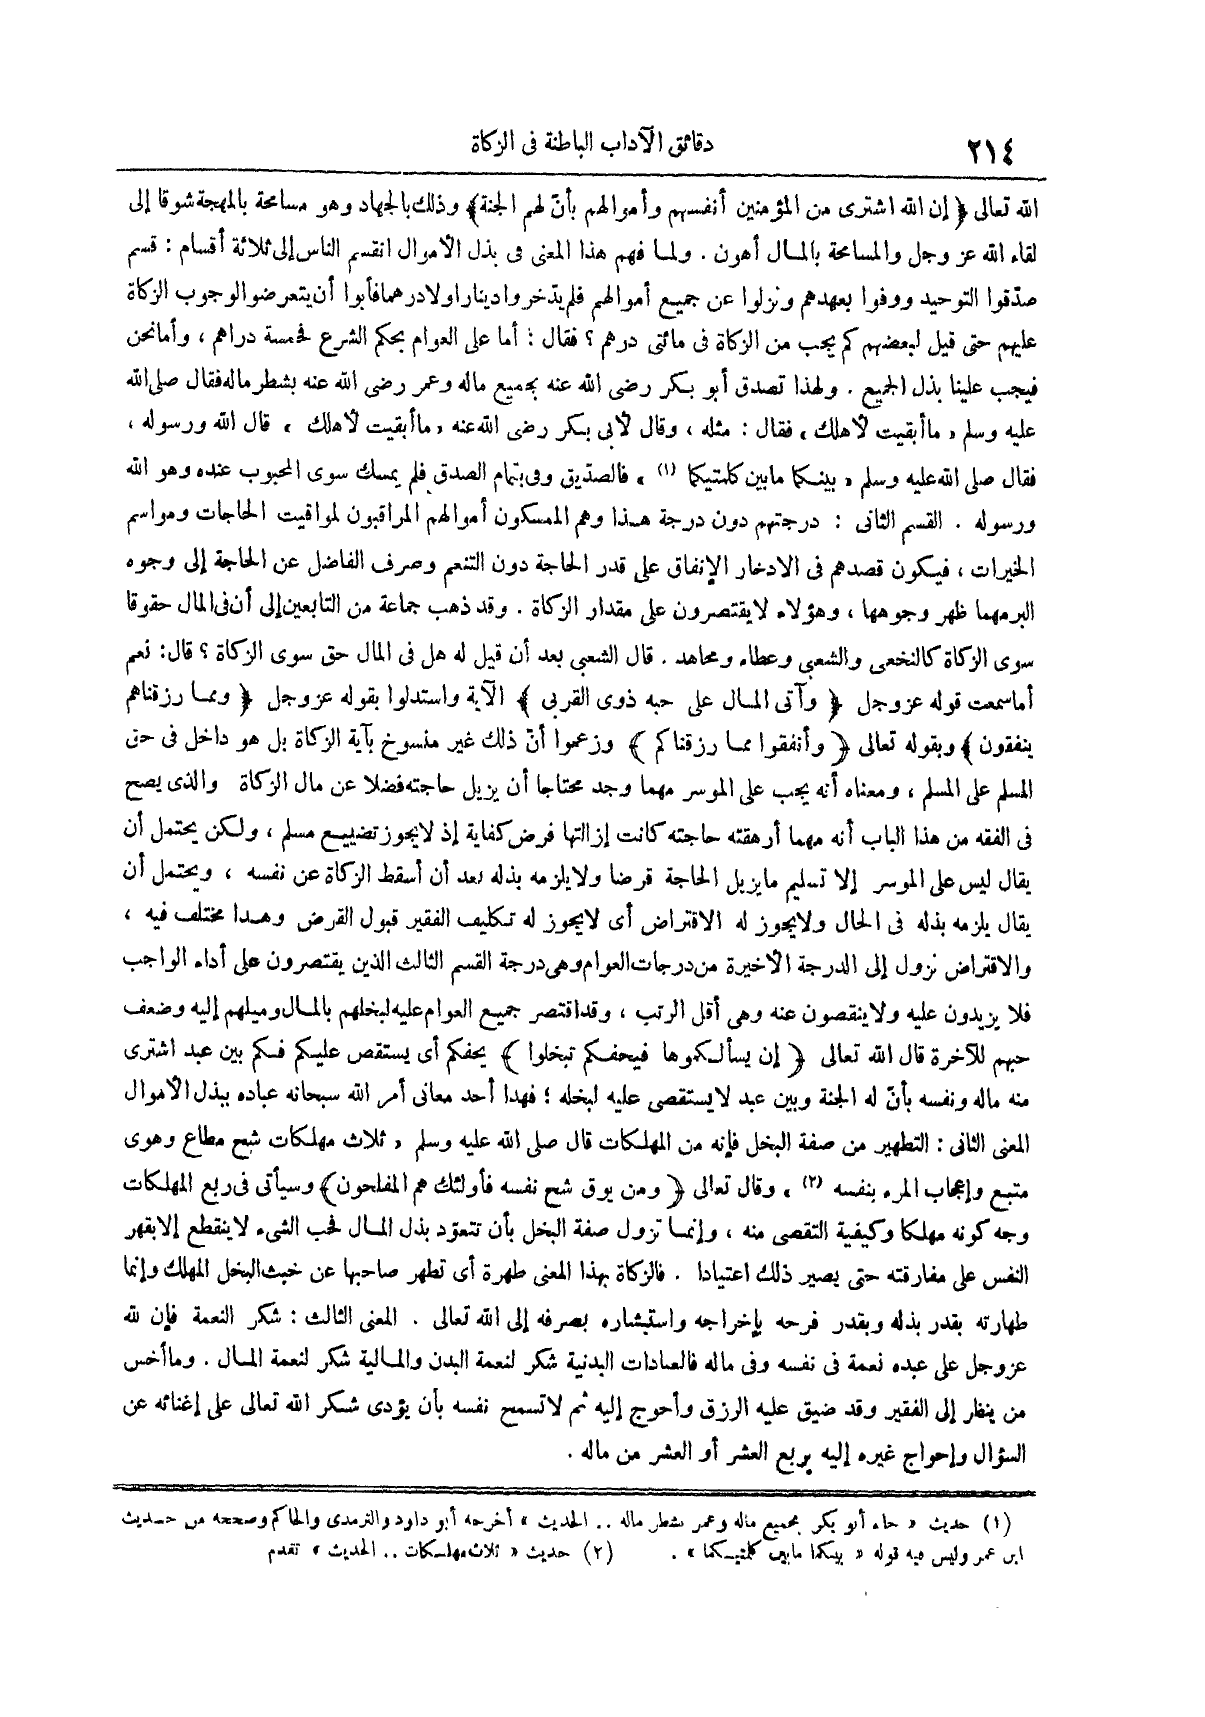 ٢١٤
دقائق الآداب الباطنة فى الزكاة
الله تعالى ﴿ إن الله اشترى من المؤمنين أنفسهم وأموالهم بأنّ لهم الجنة﴾ وذلك بالجهاد وهو مسامحة بالمهجة شوقا إلى
لقاء الله عز وجل والمسامحة بالمال أهون . ولما فهم هذا المعنى فى بذل الأموال انقسم الناس إلى ثلاثة أقسام : قسم
صدّقوا التوحيد ووفوا بعهدهم ونزلوا عن جميع أموالهم فلم يدّخروا دينارا ولا درهما فأبوا أن يتعرضوا لوجوب الزكاة
عليهم حتى قيل لبعضهم كم يجب من الزكاة فى مائتى درهم ؟ فقال : أما على العوام بحكم الشرع فخمسة دراهم ، وأما نحن
فيجب علينا بذل الجميع . ولهذا تصدق أبو بكر رضى الله عنه بجميع ماله وعمر رضى الله عنه بشطر ماله فقال صلى الله
عليه وسلم « ما أبقيت لأهلك » فقال : مثله ، وقال لأبى بكر رضى الله عنه « ما أبقيت لأهلك » قال الله ورسوله ،
فقال صلى الله عليه وسلم « بينكما مابين كلمتيكما (١) » فالصدّيق وفى بتمام الصدق فلم يمسك سوى المحبوب عنده وهو الله
ورسوله . القسم الثانى : درجتهم دون درجة هذا وهم الممسكون أموالهم المراقبون لمواقيت الحاجات ومواسم
الخيرات ، فيكون قصدهم فى الادخار الإنفاق على قدر الحاجة دون التنعم وصرف الفاضل عن الحاجة إلى وجوه
البر مهما ظهر وجوهها ، وهؤلاء لا يقتصرون على مقدار الزكاة . وقد ذهب جماعة من التابعين إلى أن فى المال حقوقا
سوى الزكاة كالنخعى والشعبى وعطاء ومجاهد . قال الشعبى بعد أن قيل له هل فى المال حق سوى الزكاة ؟ قال: نعم
أما سمعت قوله عز وجل ﴿ وآتى المال على حبه ذوى القربى ﴾ الآية واستدلوا بقوله عز وجل ﴿ ومما رزقناهم
ينفقون ﴾ وبقوله تعالى ﴿ وأنفقوا مما رزقناكم ﴾ وزعموا أنّ ذلك غير منسوخ بآية الزكاة بل هو داخل فى حق
المسلم على المسلم ، ومعناه أنه يجب على الموسر مهما وجد محتاجا أن يزيل حاجته فضلا عن مال الزكاة والذى يصح
فى الفقه من هذا الباب أنه مهما أرهقته حاجته كانت إزالتها فرض كفاية إذ لا يجوز تضييع مسلم ، ولكن يحتمل أن
يقال ليس على الموسر إلا تسليم ما يزيل الحاجة قرضا ولا يلزمه بذله بعد أن أسقط الزكاة عن نفسه ، ويحتمل أن
يقال يلزمه بذله فى الحال ولا يجوز له الاقتراض أى لا يجوز له تكليف الفقير قبول القرض وهذا مختلف فيه ،
والاقتراض نزول إلى الدرجة الأخيرة من درجات العوام وهى درجة القسم الثالث الذين يقتصرون على أداء الواجب
فلا يزيدون عليه ولا ينقصون عنه وهى أقل الرتب ، وقد اقتصر جميع العوام عليه لبخلهم بالمال وميلهم إليه وضعف
حبهم للآخرة قال الله تعالى ﴿ إن يسألكموها فيحفكم تبخلوا ﴾ يحفكم أى يستقص عليكم فكم بين عبد اشترى
منه ماله ونفسه بأنّ له الجنة وبين عبد لا يستقصى عليه لبخله ؛ فهذا أحد معانى أمر الله سبحانه عباده ببذل الأموال
المعنى الثانى : التطهير من صفة البخل فإنه من المهلكات قال صلى الله عليه وسلم « ثلاث مهلكات شح مطاع وهوى
متبع وإعجاب المرء بنفسه (٢) » وقال تعالى ﴿ ومن يوق شح نفسه فأولئك هم المفلحون﴾ وسيأتى فى ربع المهلكات
وجه كونه مهلكا وكيفية التقصى منه ، وإنما تزول صفة البخل بأن تتعوّد بذل المال فحب الشىء لا ينقطع إلا بقهر
النفس على مفارقته حتى يصير ذلك اعتيادا . فالزكاة بهذا المعنى طهرة أى تطهر صاحبها عن خبث البخل المهلك وإنما
طهارته بقدر بذله وبقدر فرحه بإخراجه واستبشاره بصرفه إلى الله تعالى . المعنى الثالث : شكر النعمة فإن لله
عز وجل على عبده نعمة فى نفسه وفى ماله فالعبادات البدنية شكر لنعمة البدن والمالية شكر لنعمة المال . وما أخس
من ينظر إلى الفقير وقد ضيق عليه الرزق وأحوج إليه ثم لا تسمح نفسه بأن يؤدى شكر الله تعالى على إغنائه عن
السؤال وإحواج غيره إليه بربع العشر أو العشر من ماله .
(١) حديث « جاء أبو بكر بجميع ماله وعمر بشطر ماله .. الحديث » أخرجه أبو داود والترمذى والحاكم وصححه من حديث
ابن عمر وليس فيه قوله « بينكما مابين كلمتيكما » . (٢) حديث « ثلاث مهلكات .. الحديث » تقدم